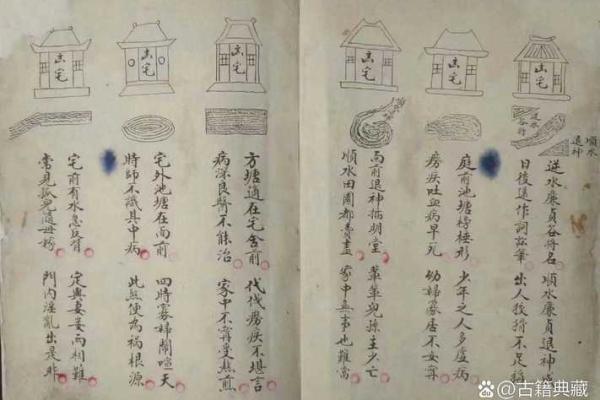 凶宅
凶宅
凶宅
順水
退神
進水廉貞 將名 順水廉貞退神
日後退作詞訟筆 出人投 不足稱
庭前池塘 棰形 少年之人多虛病
癆疾吐血病早死 幼婦寡居不安寧
面前退神插明堂 兒孫主少亡
順水田園都賣盡 家中無事也難當
凶宅
凶宅
凶宅
方塘適在宅舍前 代代癆疾不堪言
病深良醫不能治 家中不寧受熬煎
宅外池塘在面前 四時寡婦鬧喧天
時師不識其中病 此煞便為禍根源
宅前有水急反背 定與妻妾而相離
常見孤兒随母嫁 門內淫亂出是非
@古籍典藏